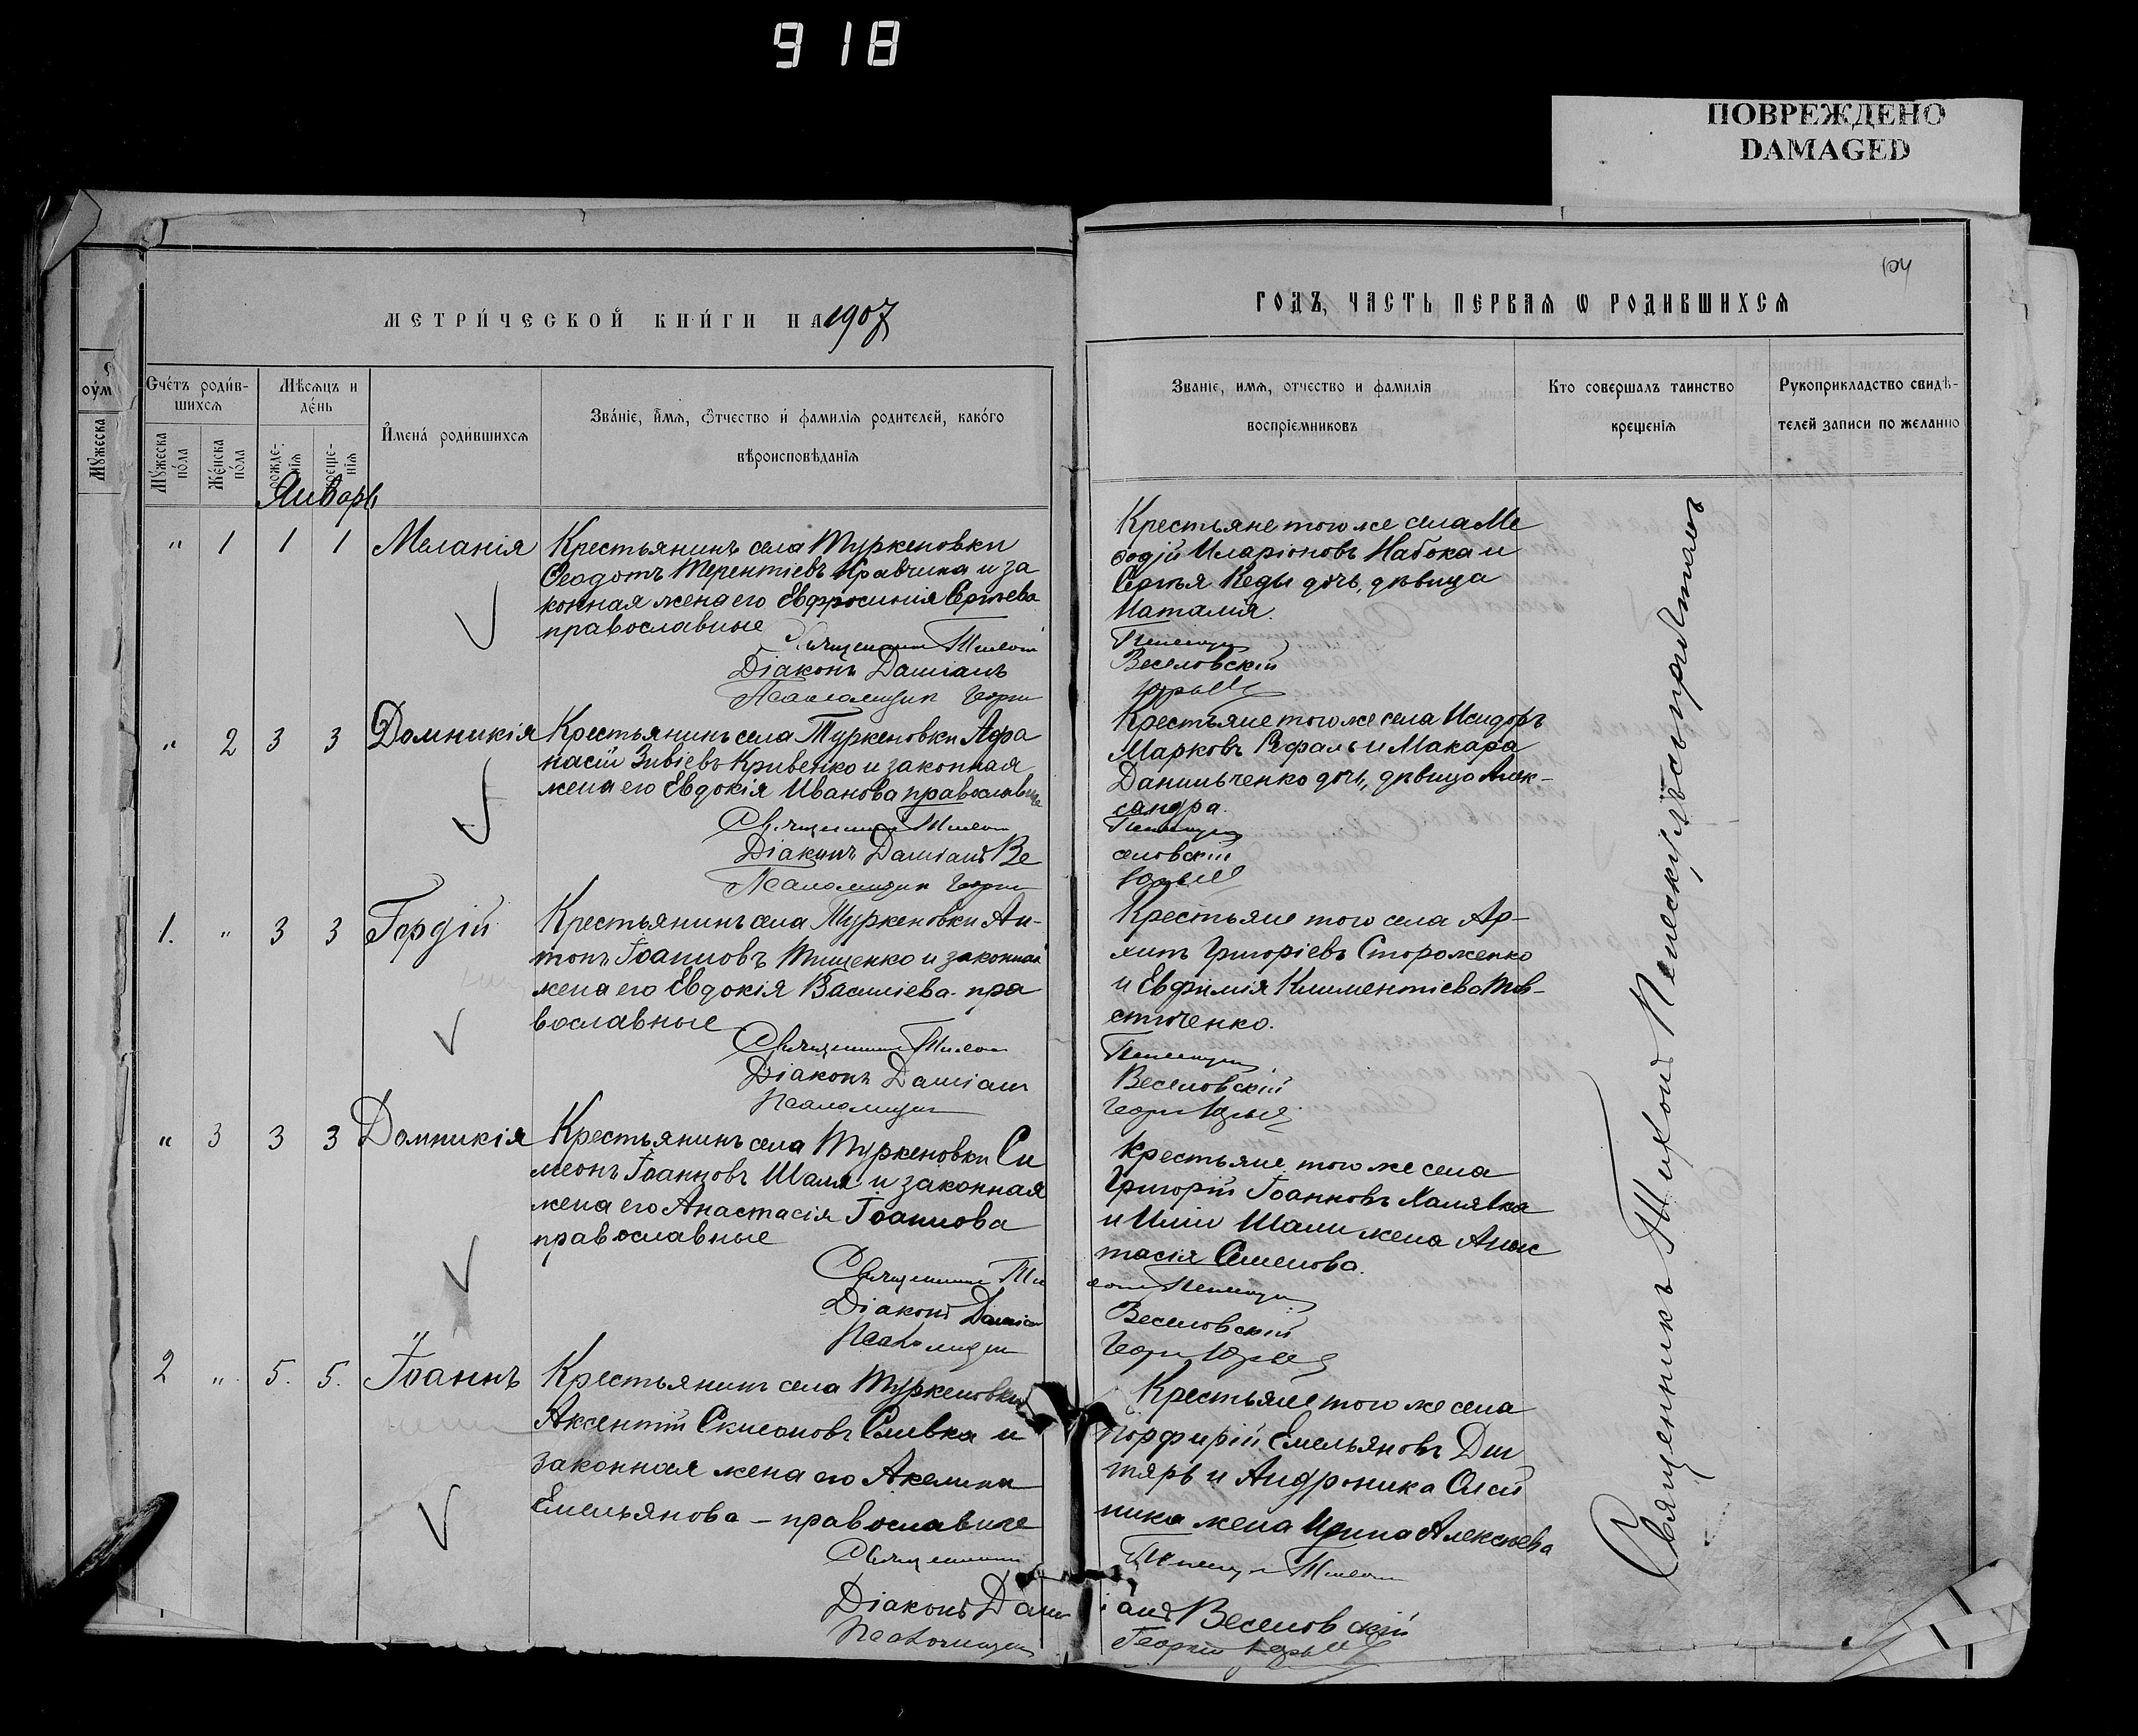 918
ПОВРЕЖДЕНО
DAMAGED
104
МЕТРИ́ЧЕСКОЙ КНИ́ГИ НА 1907
ГОДЪ, ЧАСТЬ ПЕРВАЯ Ѡ РОДИВШИХСЯ
оу́м
Му́жеска
Сче́тъ роди́в-
шихся
Мѣсяцъ и
де́нь
Му́жеска по́ла
Же́нска по́ла
рожде-нія
креще-нія
Имена́ роди́вшихся
Зва́ніе, и́мя, ѻтчество и фамилія родителей, како́го
вѣроисповѣданія
Званіе, имя, отчество и фамилія
воспріемниковъ
Кто совершалъ таинство
крещенія
Рукоприкладство свидѣ-
телей записи по желанію
Январь
" 1 1 1 Меланія
Крестьянинъ села Туркеновки
Ѳеодотъ Терентіевъ Кравчина и за
конная жена его Евфросинія Сергѣева
православные
Священникъ Тихон
Діаконъ Даміанъ
Псаломщик Георги
Крестьяне того же села Ме
ѳодій Иларіоновъ Набока и
Сергѣя Кеды дочь, дѣвица
Наталія.
Веселовскій
" 2 3 3 Домникія
Крестьянинъ села Туркеновки Афа
насій Кривенко и законная
жена его Евдокія Иванова православные
Священникъ Тихон
Діаконъ Даміанъ Ве
Псаломщик Георги
Крестьяне того же села Исидоръ
Марковъ и Макара
Данильченко дочь, дѣвица Алек-
сандра.
селовскій
1. " 3 3 Гордій
Крестьянинъ села Туркеновки Ан-
тонъ Іоанновъ Тищенко и законная
жена его Евдокія Василіева пра
вославные
Священникъ Тихон
Діаконъ Даміан
Псаломщик
Крестьяне того села
Григоріевъ Стороженко
и Евфимія Климентіева Тов-
стюченко.
Веселовскій
" 3 3 3 Домникія
Крестьянинъ села Туркеновки Си
меонъ Іоанновъ Шаля и законная
жена его Анастасія Іоаннова
православные
Священникъ Ти
Діаконъ Даміан
Псаломщик
Крестьяне того же села
Григорій Іоанновъ Халявка
и Иліи Шали жена Анас
тасія Семенова.
Веселовскій
2 " 5. 5. Іоаннъ
Крестьянинъ села Туркеновки
Аксентій Сливка и
законная жена его Акелина
Емельянова - православные
Священник
Діаконъ Дам
Псаломщик
Крестьяне того же села
Порфирій Емельяновъ Дег
тярь и Андроника Олей
ника жена Ирина Алексѣева
Тихон
іанъ Веселовскій
Георгій
Священникъ Тихонъ